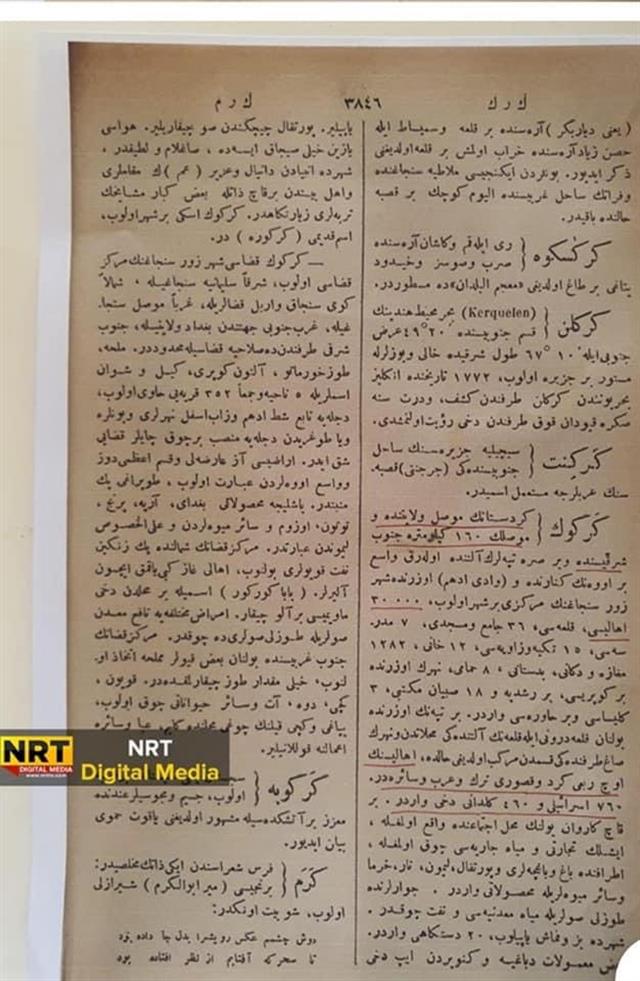 ك ر ك
٣٨٤٦
ك ر م
( یعنی دیاربكر ) آره‌سنده بر قلعه وسمیاط ایله
حصن زیاد آره‌سنده خراب اولمش بر قلعه اولدیغنی
ذكر ایدیور. بونلردن ایكنجیسی ملاطیه سنجاغنده
وفراتك ساحل غربیسنده الیوم كوچك بر قصبه
حالنده باقیدر.
كركسكوه { ری ایله قم وكاشان آره‌سنده
صرب وصوسز وخیدود
یتاغی بر طاغ اولدیغی «معجم البلدان»ده مسطوردر.
كركلن { (Kerquelen) بحر محیط هندینك
قسم جنوبیسنده ٢٠َ ٤٩ْ عرض
جنوبی ایله ١٠َ ٦٧ْ طول شرقیده خالی وبوزلرله
مستور بر جزیره اولوب، ١٧٧٢ تاریخنده انكلیز
بحریونندن كركلن طرفندن كشف، ودرت سنه
صكره قپودان قوق طرفندن دخی رؤیت اولنمشدی.
كركنت { سیچیلیه جزیره‌سنك ساحل
جنوبیسنده‌كی (جرجنتی) قصبه‌
سنك عربلرجه مستعمل اسمیدر.
كركوك { كردستانك موصل ولایتنده و
موصلك ١٦٠ كیلومتره جنوب
شرقیسنده وبر صره تپه‌لرك آلتنده اوله‌رق واسع
بر اووه‌نك كنارنده و (وادی ادهم) اوزرنده شهر
زور سنجاغنك مركزی بر شهر اولوب، ٣٠٠٠٠
اهالیسی، قلعه‌سی، ٣٦ جامع ومسجدی، ٧ مدر.
سه‌سی، ١٥ تكیه وزاویه‌سی، ١٢ خانی، ١٢٨٢
مغازه و دكانی، بدستانی، ٨ حمامی، نهرك اوزرنده
بر كوپریسی، بر رشدیه و ١٨ صبیان مكتبی، ٣
كلیساسی وبر حاوره‌سی واردر. بر تپه‌نك اوزرنده
بولنان قلعه درونی ایله قلعه‌نك آلتنده‌كی محلاتدن ونهرك
صاغ طرفنده‌كی قسمدن مركب اولدیغی حالده، اهالیسنك
اوچ ربعی كرد وقصوری ترك وعرب وسائره‌در.
٧٦٠ اسرائیلی و ٤٦٠ كلدانی دخی واردر. بر
قاچ كاروان یولنك محل اجتماعنده واقع اولمغله،
ایشلك تجارتی و میاه جاریه‌سی چوق اولمغله،
اطرافنده باغ وباغچه‌لری وپورتقال، لیمون، نار، خرما
وسائر میوه‌لریله محصولاتی واردر. جوارلرنده
طوزلی صولریله میاه معدنیه‌سی و نفت چوقدر.
شهرده بز وقماش یاپیلوب، ٢٠ دستكاهی واردر.
معمولات دباغیه و كنویردن ایپ دخی
یاپیلیر. پورتقال چیچكندن صو چیقاریلیر. هواسی
یازین خیلی صیجاق ایسه‌ده، صاغلام و لطیفدر،
شهرده انبیادن دانیال وعزیر (عم) ك مقاملری
واهل بیتدن بر قاچ ذاتله بعض كبار مشایخك
تربه‌لری زیارتكاهدر. كركوك اسكی بر شهر اولوب،
اسم قدیمی (كركوره) در.
— كركوك قضاسی شهر زور سنجاغنك مركز
قضاسی اولوب، شرقاً سلیمانیه سنجاغیله، شمالاً
كوی سنجاق واربل قضالریله، غرباً موصل سنجا.
غیله، غرب جنوبی جهتندن بغداد ولایتیله، جنوب
شرقی طرفندن ده صلاحیه قضاسیله محدوددر. ملحه،
طوز خورماتو، آلتون كوپری، كیل و شوان
اسملریله ٥ ناحیه وجمعاً ٣٥٢ قریه‌یی حاوی اولوب،
دجله‌یه تابع شط ادهم وزاب اسفل نهرلری وبونلره
ویا طوغریدن دجله‌یه منصب بر چوق چایلر قضایی
شق ایدر. اراضیسی آز عارضه‌لی وقسم اعظمی دوز
وواسع اووه‌لردن عبارت اولوب، طوپراغی پك
منبتدر. باشلیجه محصولاتی بغدای، آرپه، پرنج،
توتون، اوزوم و سائر میوه‌لردن و علی الخصوص
لیموندن عبارتدر. مركز قضانك شمالنده پك زنكین
نفت قویولری بولنوب، اهالی غاز كبی یاقمق ایچون
آلیرلر. (بابا كوركور) اسمیله بر محلدن دخی
ماویمسی بر آلو چیقار. امراض مختلفه‌یه نافع معدن
صولریله طوزلی صولری ده چوقدر. مركز قضانك
جنوب غربیسنده بولنان بعض قیولر مملحه اتخاذ او.
لنوب، خیلی مقدار طوز چیقارلمقده‌در. قویون،
كچی، دوه، آت وسائر حیواناتی چوق اولوب،
یپاغی وكچی قیلنك چوغی محلنده كلیم، عبا وسائره
اعمالنه قوللانیلیر.
كركویه {
اولوب، جسیم ومجوسیلر عندنده
معزز بر آتشكده‌سیله مشهور اولدیغنی یاقوت حموی
بیان ایدیور.
كرم { فرس شعراسندن ایكی ذاتك مخلصیدر:
برنجیسی (میر ابوالكرم) شیرازلی
اولوب، شو بیت اونكدر:
دوش چشمم عكس رویشرا بدل جا داده بود
تا سحر كه آفتابم از نظر افتاده بود
NRT
DIGITAL MEDIA
www.nrttv.com
NRT
Digital Media